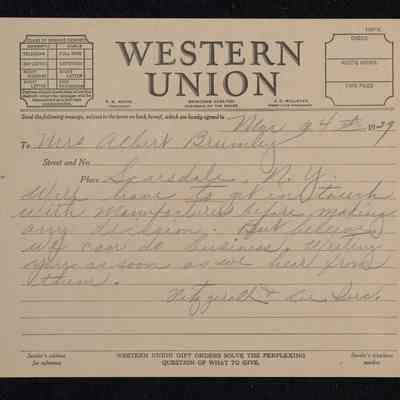 WESTERN
UNION
CHECK
ACCT'G INFMN.
TIME FILED
CLASS OF SERVICE DESIRED
DOMESTIC CABLE
TELEGRAM FULL RATE
DAY LETTER DEFERRED
NIGHT MESSAGE NIGHT LETTER
NIGHT LETTER
NEWCOMB CARLTON
CHAIRMAN OF THE BOARD
J. C. WILLEVER
FIRST VICE-PRESIDENT
Send the following message, subject to the terms on back hereof, which are hereby agreed to
4th 1929
To Mrs Albert Brumley
Street and No.
Place Scarsdale, N. Y.
Will have to get in touch
with Manufacturer before making
any decision. But believe
we can do business. Writing
you as soon as we hear from
them.
Fitzgerald &
Sender's address
for reference
WESTERN UNION GIFT ORDERS SOLVE THE PERPLEXING
QUESTION OF WHAT TO GIVE.
Sender's telephone
number